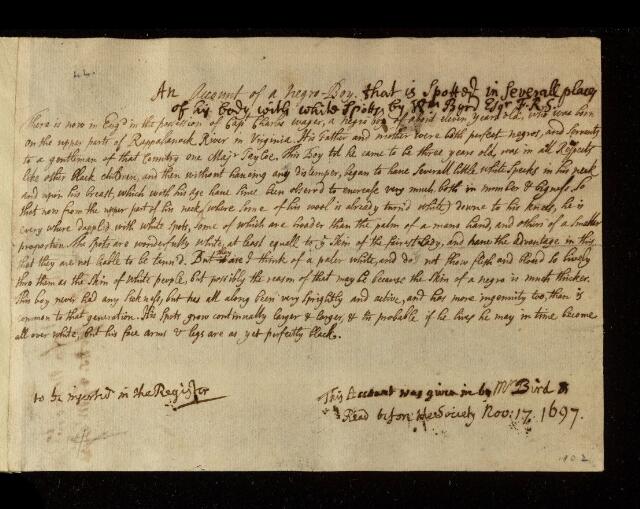 44.
An Account of a negro-Boy that is Spotted in Severall places
of his body with white Spots, by Wm Byrd Esqr F.R.S.
There is now in Engd in the possession of Capt Charles Wager, a negro boy of about eleven years old, who was born
on the upper parts of Rappahanock River in Virginia. His Father and mother were both perfect negros, and Servants
to a gentleman of that Country one Majr Tayloe. This Boy til he came to be three years old was in all Respects
like other black children, and then without haveing any Distemper, began to have Severall little white Specks in his neck
and upon his breast, which with his age have since been observd to encrease very much, both in number & bigness. So
that now from the upper part of his neck (where Some of his wool is already turn'd white) down to his knees, he is
every where dappl'd with white Spots, Some of which are broader than the palm of a mans hand, and others of a Smaller
proportion. The Spots are wonderfully white, at least equall to ye Skin of the fairest Lady, and have the advantage in this
that they are not liable to be tann'd. But they are I think of a paler white, and do not show flesh and blood So lively
thro them as the Skin of white people, but possibly the reason of that may be because the Skin of a negro is much thicker.
This boy never had any Sickness, but has all along been very Sprightly and active, and has more ingenuity too, than is
common to that generation. His Spots grow continually larger & larger, & tis probable if he lives he may in time become
all over white, but his face arms & legs are as yet perfectly black.
to be inserted in the Register
This Account was given in by Mr Bird &
Read before the Society Nov: 17. 1697.
102